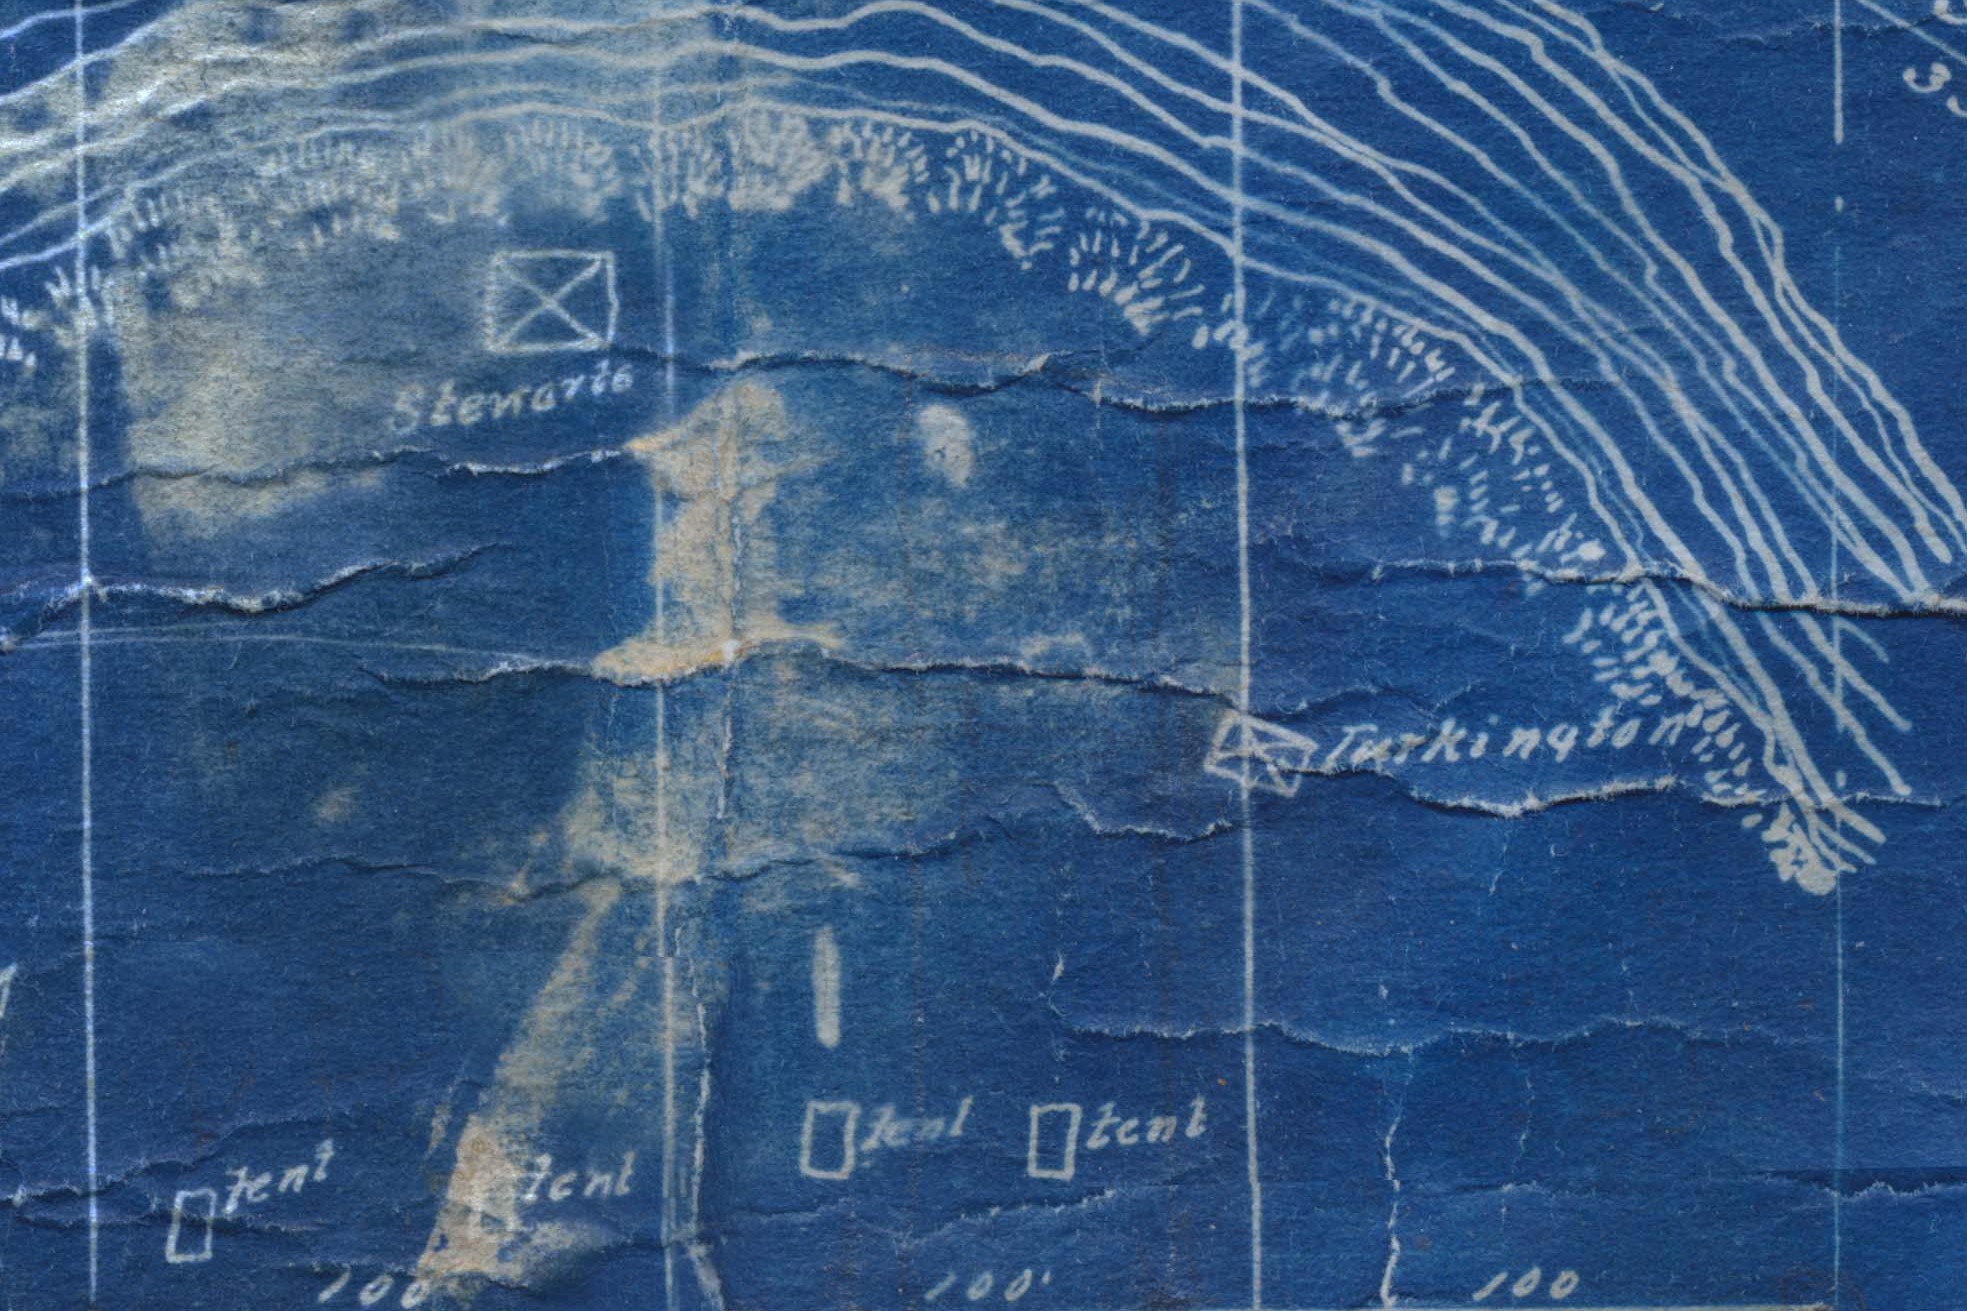 Stewarts
Turkington
tent
tent
tent
tent
100'
100'
100